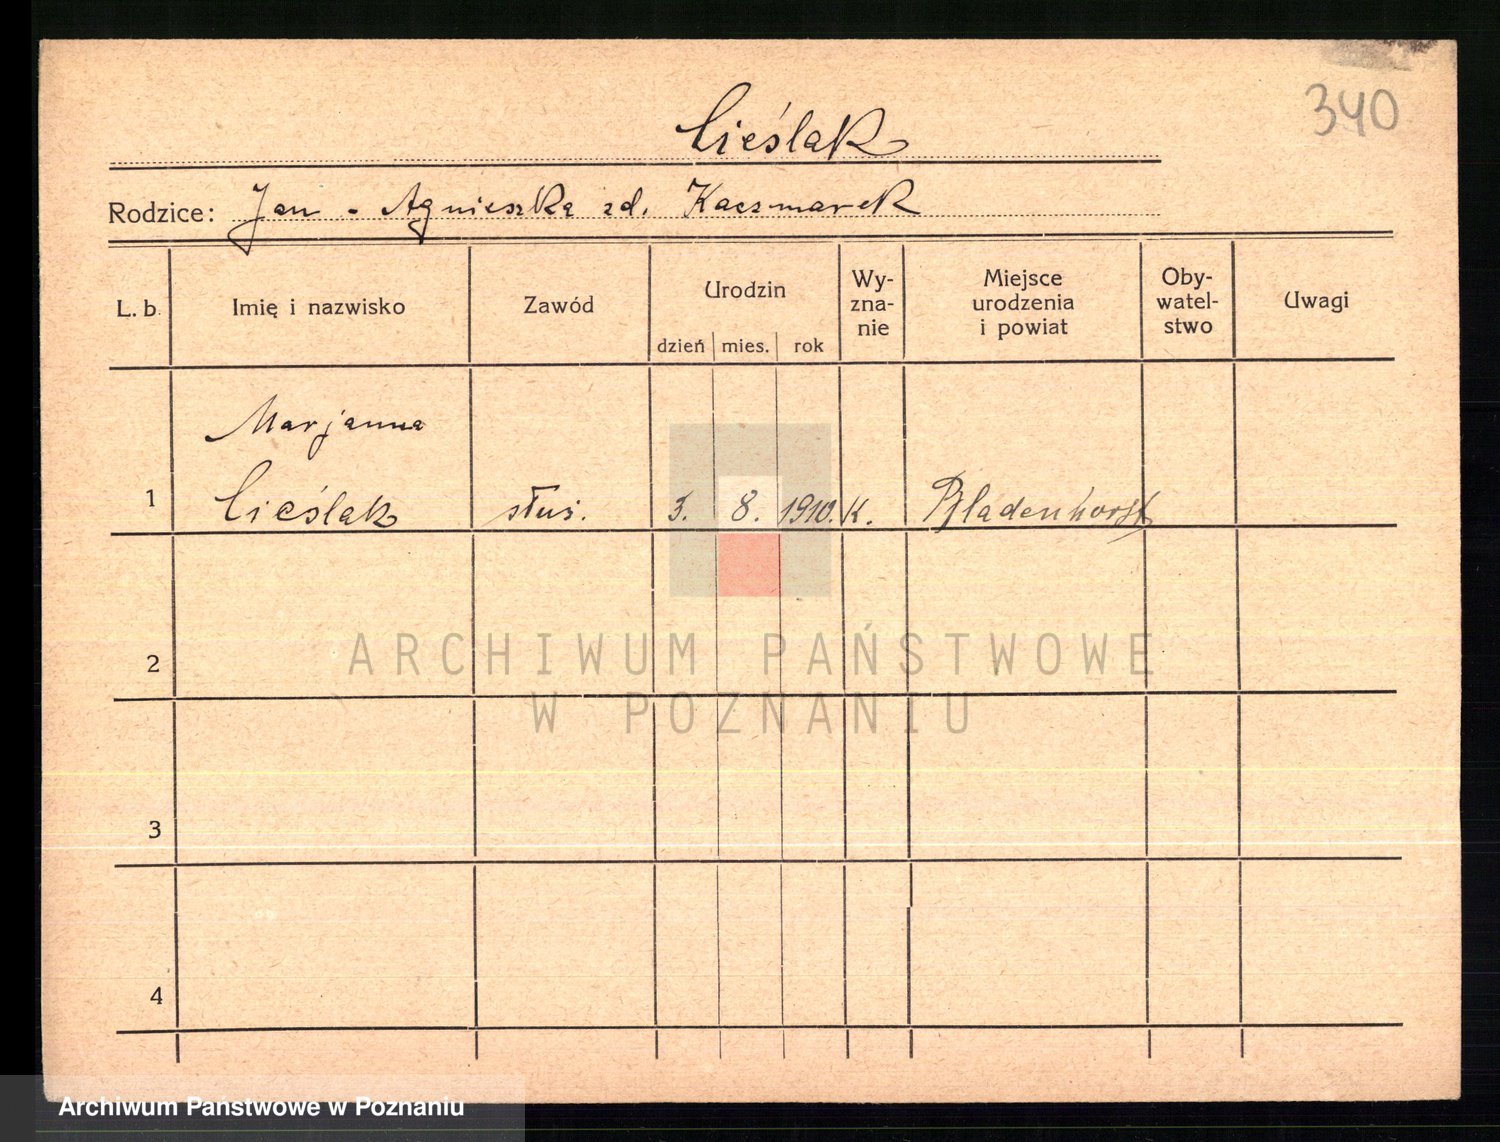 340
Cieślak
Rodzice: Jan - Agnieszka zd. Kaczmarek
L. b. Imię i nazwisko Zawód Urodzin Wy- Miejsce Oby- Uwagi
zna- urodzenia watel-
nie i powiat stwo
dzień mies. rok
Marjanna
1 Cieślak służ. 3. 8. 1910. K.
2
3
4
ARCHIWUM PAŃSTWOWE
W POZNANIU
Archiwum Państwowe w Poznaniu